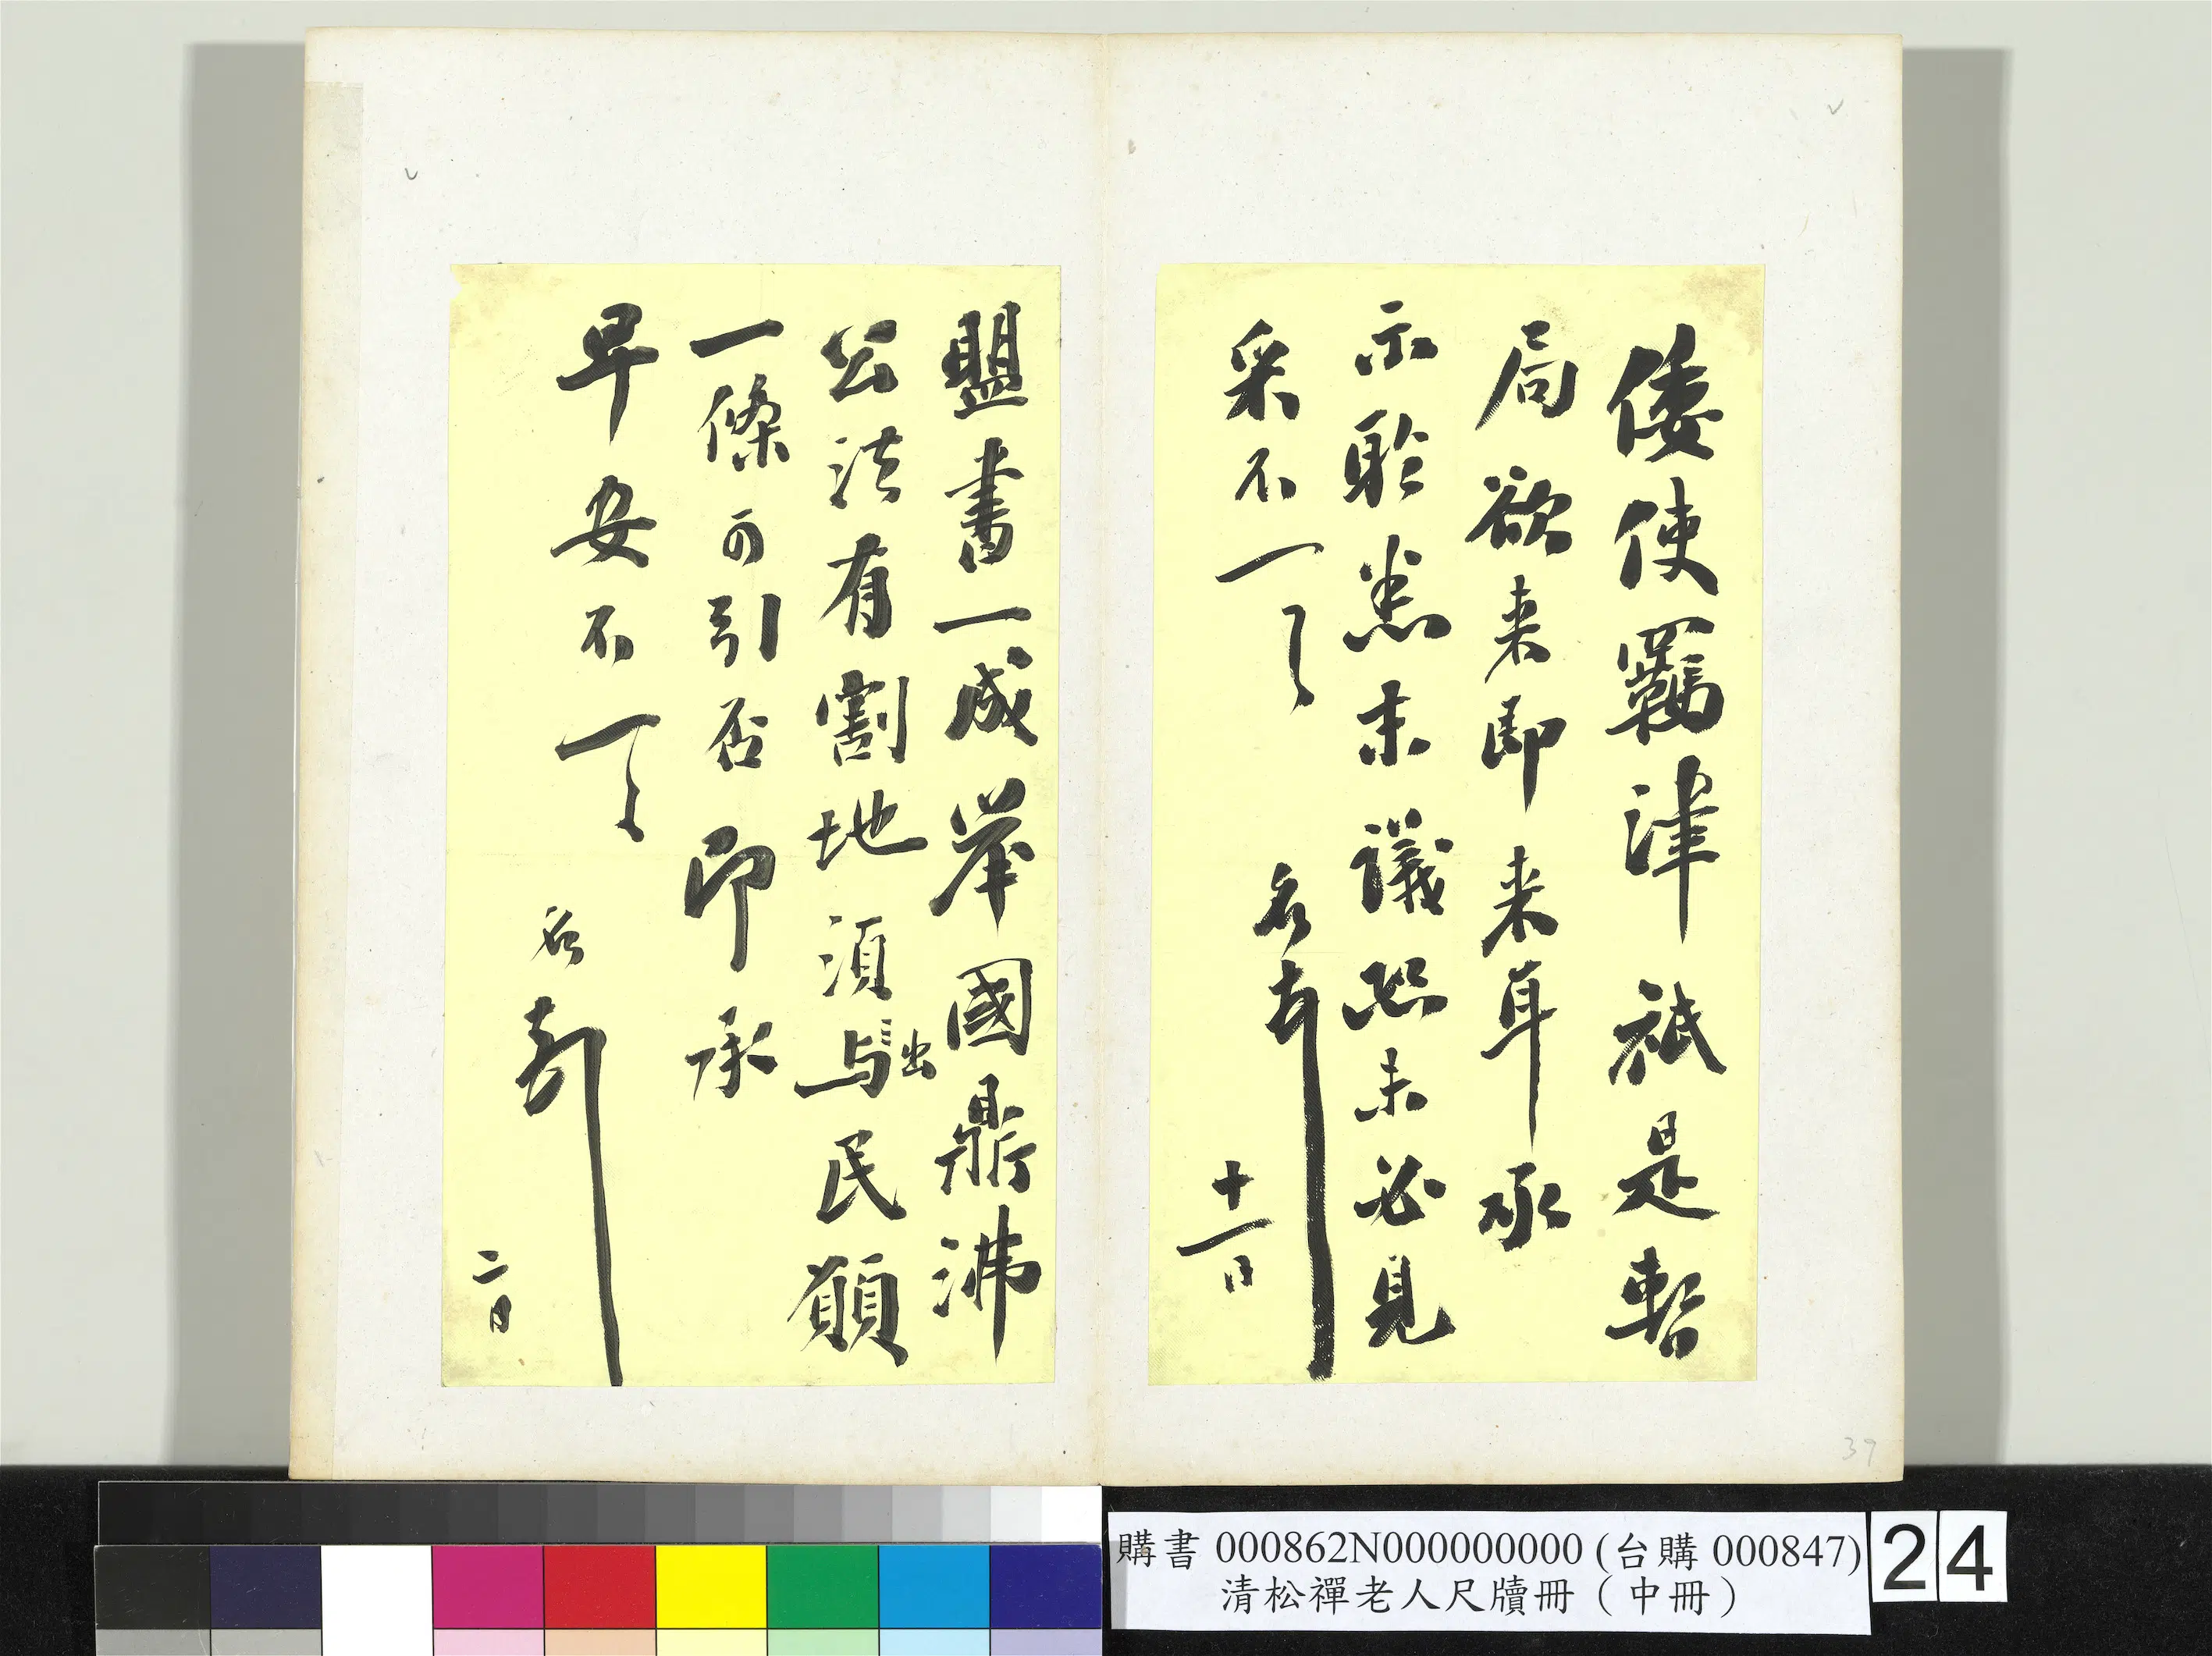 倭使羈津祇是暫
局欲来即来耳承
示聆悉末議恐未必見
采不一一
名頓
十一日
盟書一成舉國鼎沸
公法有割地須出
民願
一條可引否即承
早安不一一
名頓
二日
39
購書 000862N000000000 (台購 000847)
清松禪老人尺牘冊（中冊）
24